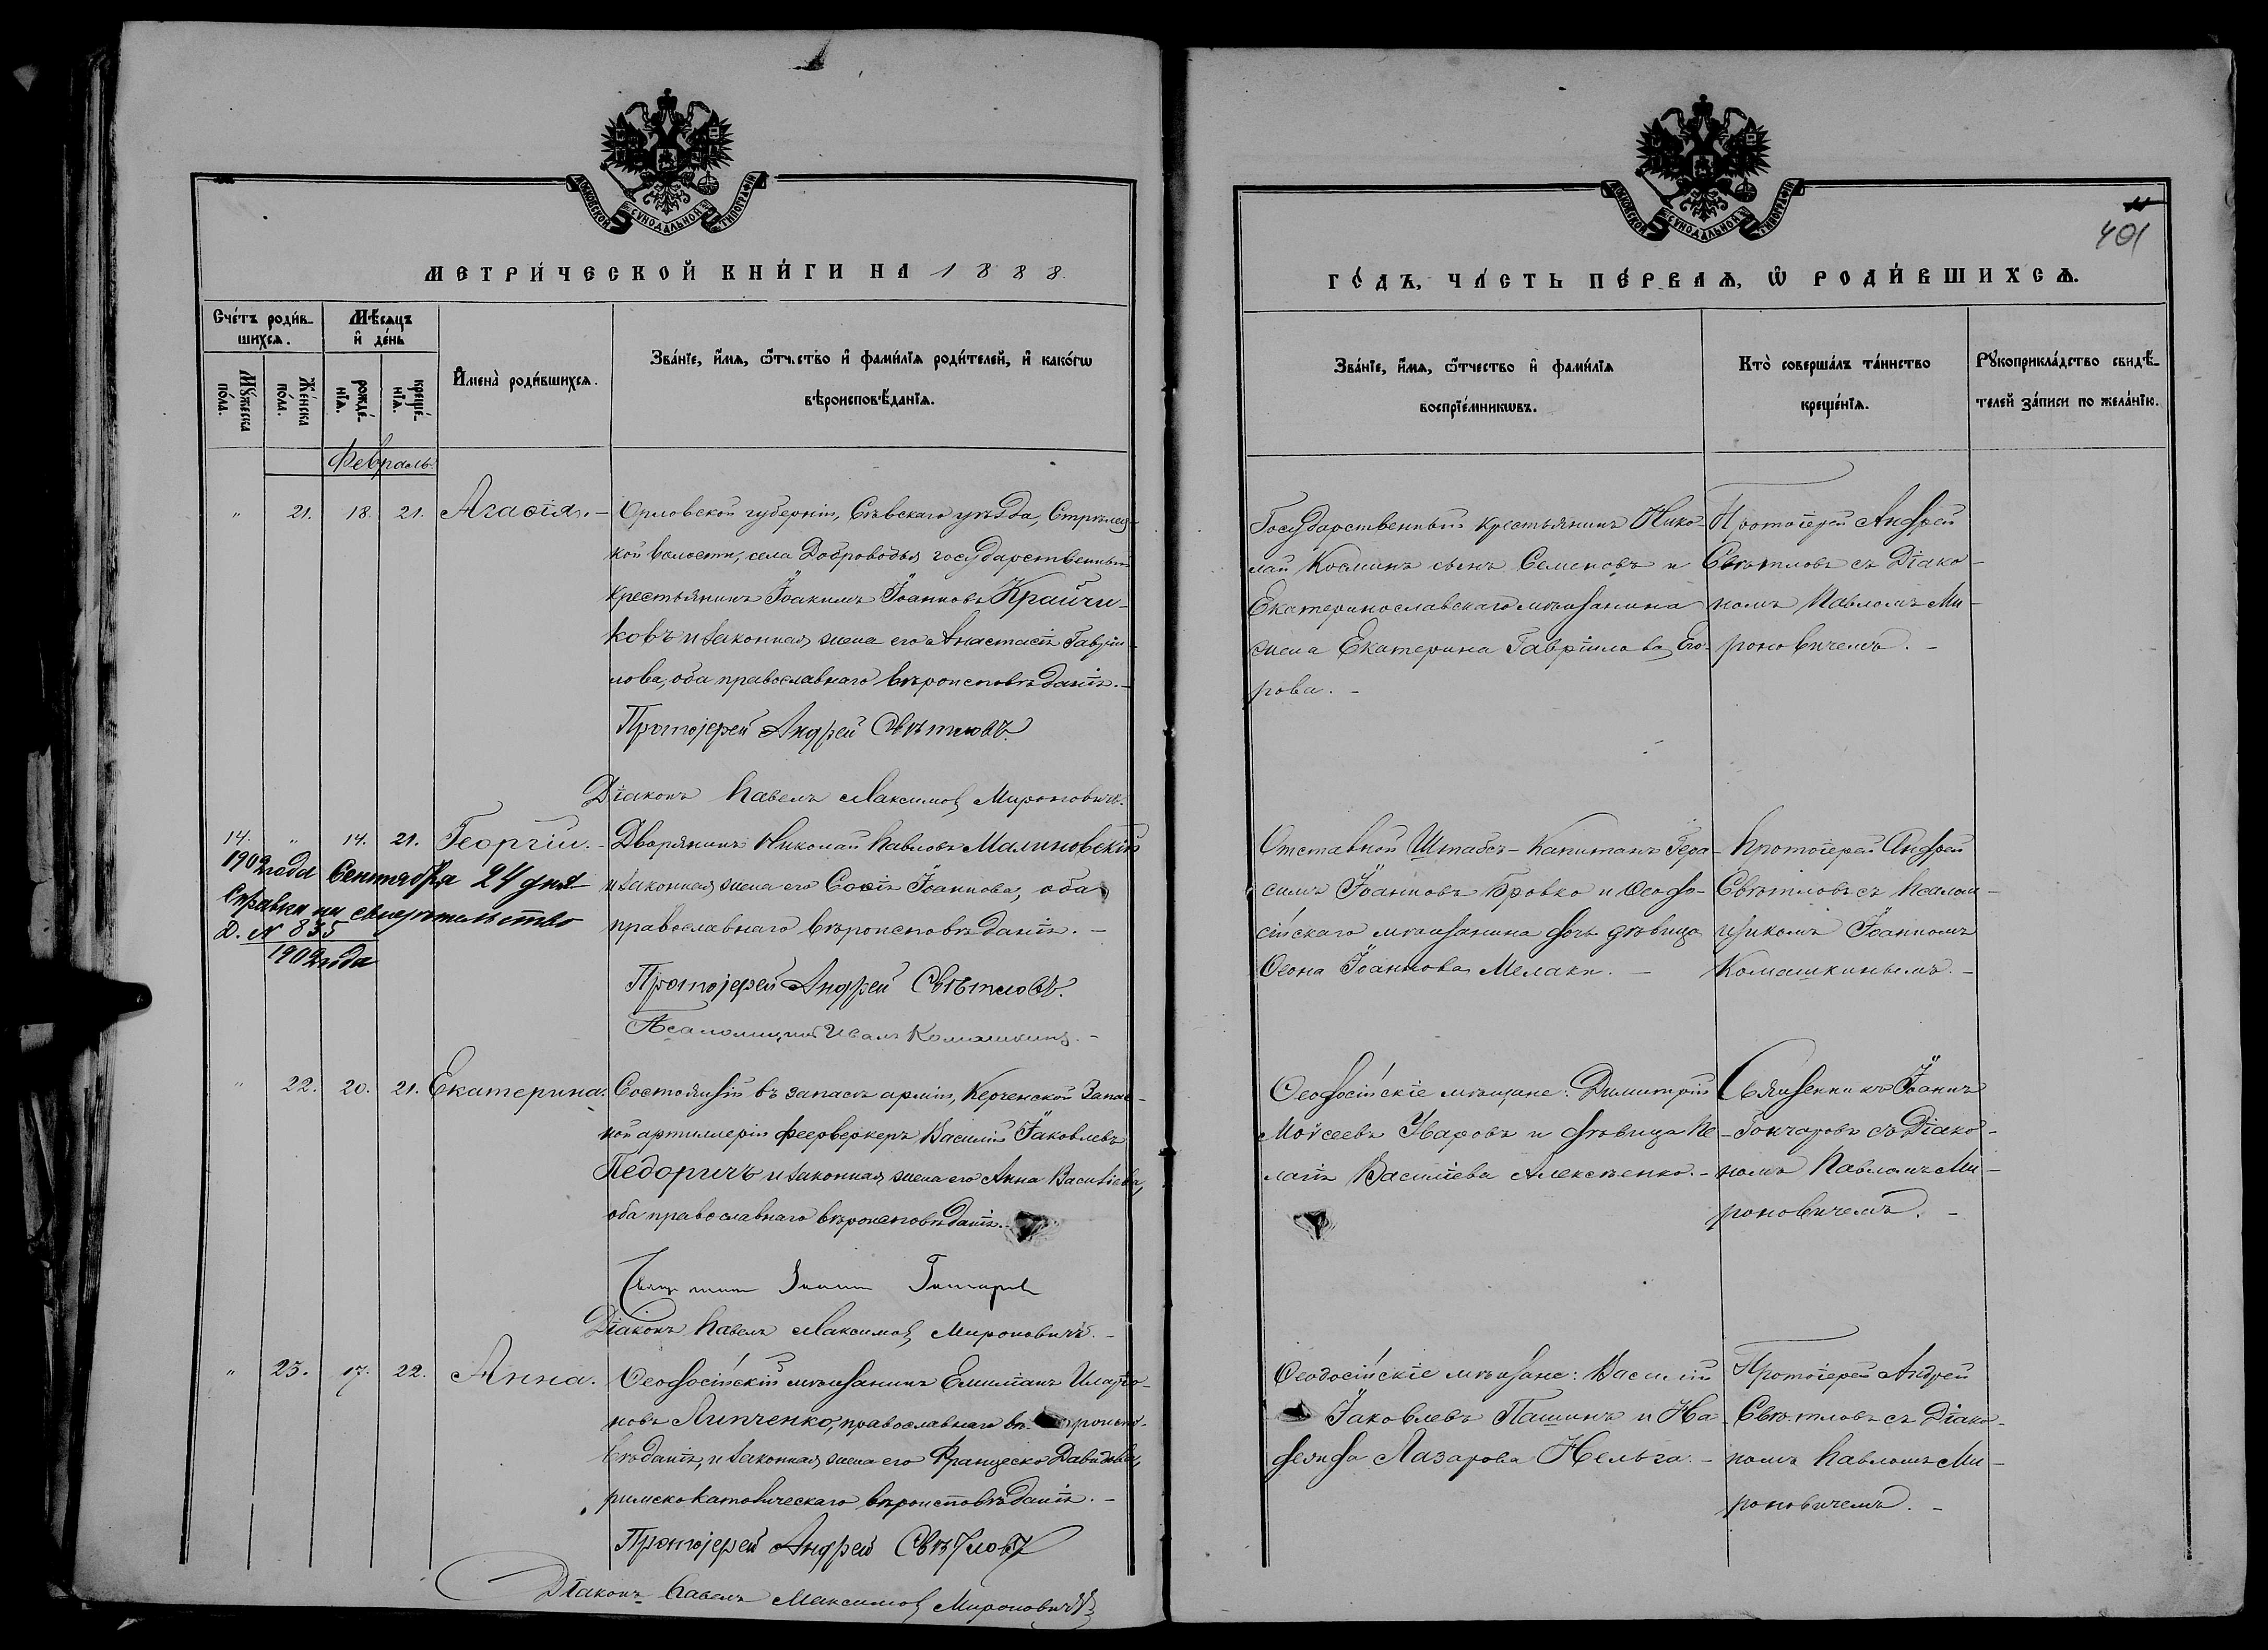 МОСКОВСКОЙ СУНОДАЛЬНОЙ ТИПОГРАФІИ
МЕТРИ́ЧЕСКОЙ КНИ́ГИ НА 1888
Сче́тъ роди́в-
шихсѧ.
Мѣ́сѧцъ
и҆ де́нь
Мꙋ́жеска
по́ла.
Же́нска
по́ла.
рожде́-
нїѧ.
креще́-
нїѧ.
И҆мена̀ роди́вшихсѧ.
Зва́нїе, и҆́мѧ, ѻ҆́тчество и҆ фами́лїѧ роди́телей, и҆ како́гѡ
вѣроисповѣ́данїѧ.
Февраль.
" 21. 18. 21. Агаѳія. -
Орловской губерніи, Сѣвскаго уѣзда, Стрѣлец-
кой волости, села Доброводья государственный
крестьянинъ Іоакимъ Іоанновъ Крайчи-
ковъ и законная жена его Анастасія Гаврiи-
лова, оба православнаго вѣроисповѣданія. -
Протоіерей Андрей Свѣтловъ.
Діаконъ Павелъ Максимов Мироновичъ.
14. " 14. 21. Георгій. -
Дворянинъ Николай Павловъ Малиновскій
и законная жена его Софія Іоаннова, оба
православнаго вѣроисповѣданія. -
1902 года Сентября 24 дня
Справка на свидѣтельство
Д. № 835
1902 года
Протоіерей Андрей Свѣтловъ.
Псаломщикъ Иванъ Комашкинъ. -
" 22. 20. 21. Екатерина.
Состоящій въ запасѣ арміи, Керченской
ной артиллеріи фейерверкеръ Василій Іаковлевъ
Педоричъ и законная жена его Анна Василіева,
оба православнаго вѣроисповѣданія.
Священникъ Іоаннъ Гончаровъ
Діаконъ Павелъ Максимов Мироновичъ. -
" 23. 17. 22. Анна.
Ѳеодосійскій мѣщанинъ Емиліанъ Иларіо-
новъ Липченко, православнаго вѣроиспо-
вѣданія, и законная жена его Франческо Давидова,
римскокатолическаго вѣроисповѣданія. -
Протоіерей Андрей Свѣтловъ
Діаконъ Павелъ Максимов Мироновичъ
МОСКОВСКОЙ СУНОДАЛЬНОЙ ТИПОГРАФІИ
401
ГО́ДЪ, ЧА́СТЬ ПЕ́РВАѦ, Ѡ҆ РОДИ́ВШИХСѦ.
Зва́нїе, и҆́мѧ, ѻ҆́тчество и҆ фами́лїѧ
воспрїе́мникѡвъ.
Кто̀ соверша́лъ та́инство
креще́нїѧ.
Рꙋкоприкла́дство свидѣ́-
телей за́писи по жела́нїю.
Государственный крестьянинъ Нико-
лай Косминъ сынъ Семеновъ и
Екатеринославскаго мѣщанина
жена Екатерина Гавріилова Его-
рова. -
Протоіерей Андрей
Свѣтловъ съ Діако-
номъ Павломъ Ми-
роновичемъ. -
Отставной Штабсъ-Капитанъ Гера-
симъ Іоанновъ Бровко и Ѳеодо-
сійскаго мѣщанина дочь дѣвица
Ѳеона Іоаннова Мелаки. -
Протоіерей Андрей
Свѣтловъ съ Псалом-
щикомъ Іоанномъ
Комашкинымъ. -
Ѳеодосійскіе мѣщане: Димитрій
Моѵсеевъ Уваровъ и дѣвица Пе-
лагія Василіева Алексѣенко. -
Священникъ Іоаннъ
Гончаровъ съ Діако-
номъ Павломъ Ми-
роновичемъ. -
Ѳеодосійскіе мѣщане: Василій
Іаковлевъ Пашинъ и На-
дежда Лазарова Нельга. -
Протоіерей Андрей
Свѣтловъ съ Діако-
номъ Павломъ Ми-
роновичемъ. -